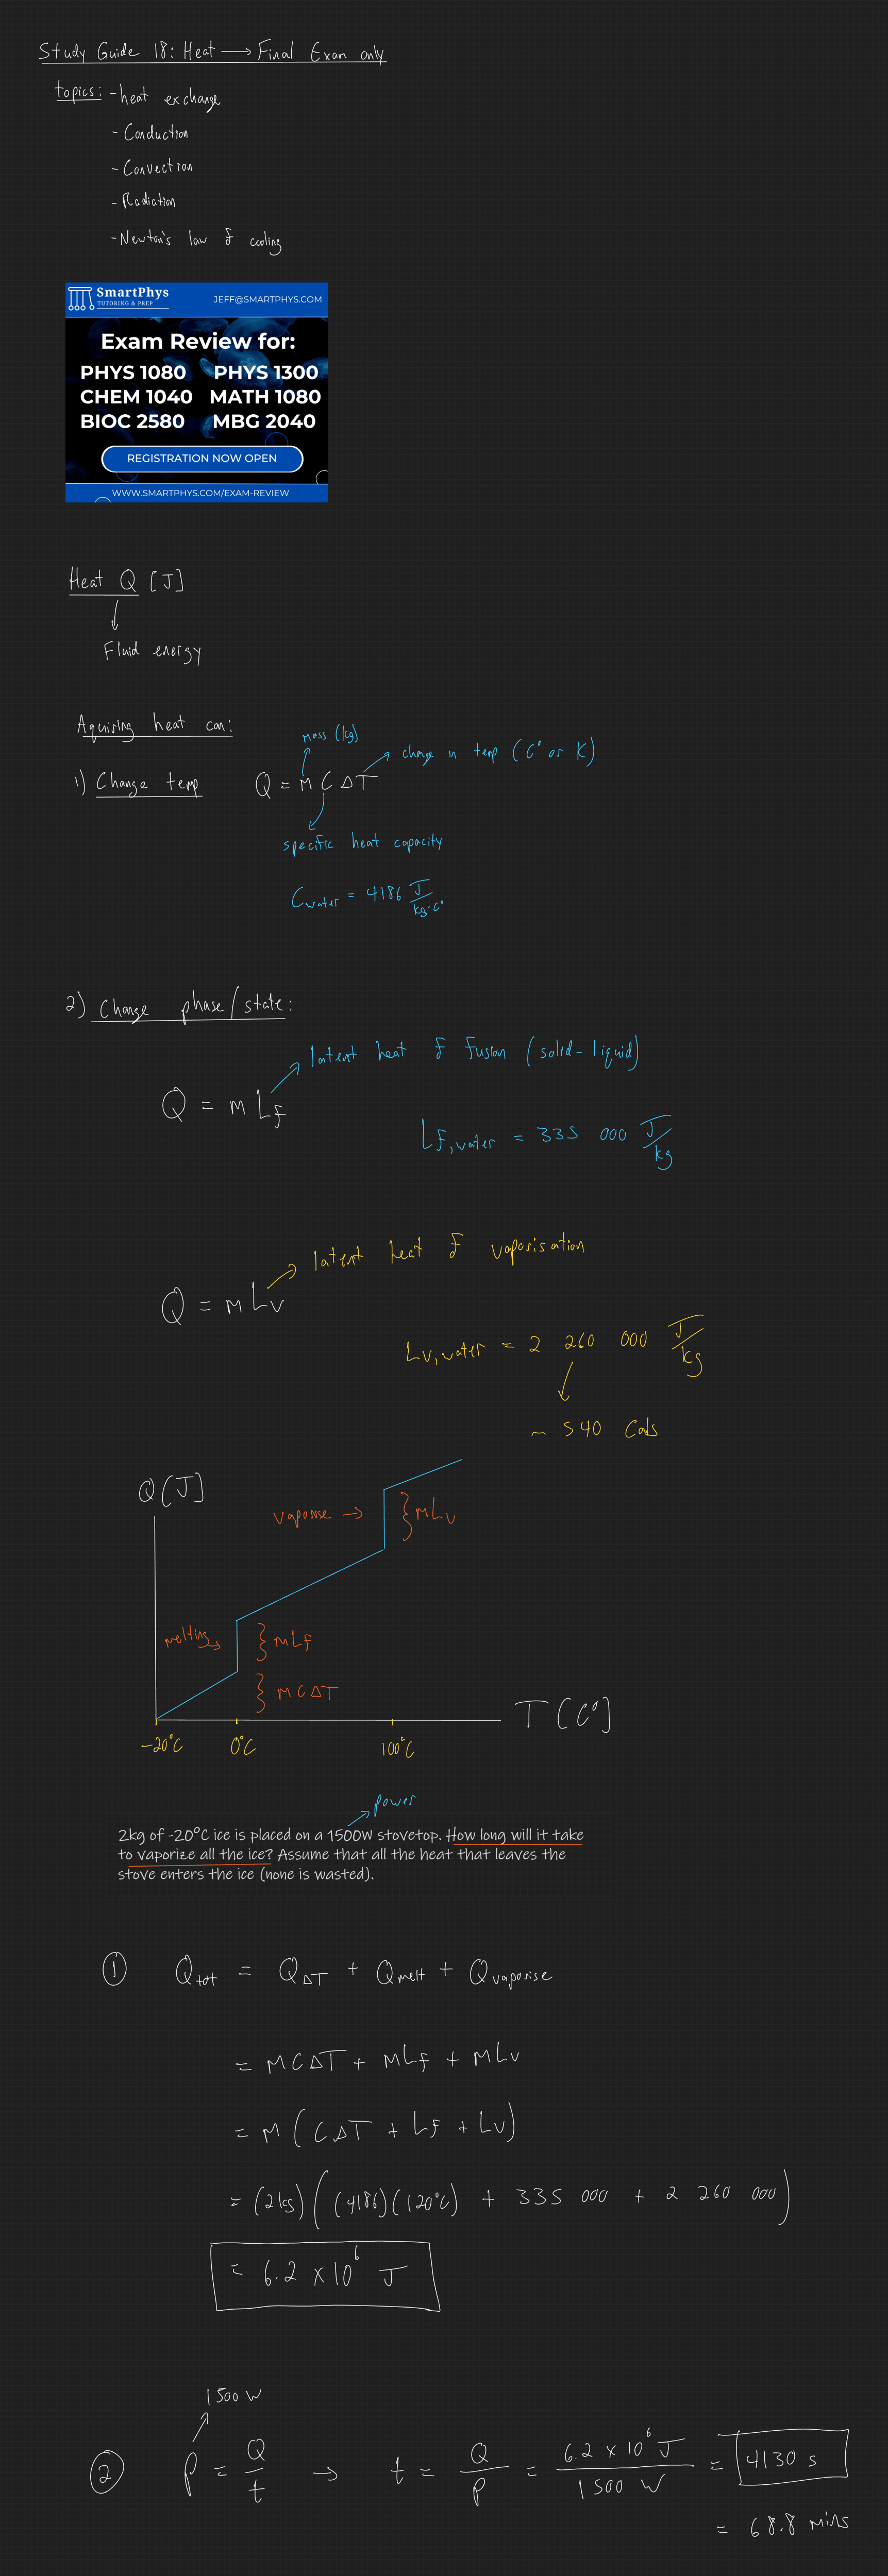 Study Guide 18: Heat → Final Exam only
topics: - heat exchange
- Conduction
- Convection
- Radiation
- Newton's law of cooling
SmartPhys
TUTORING & PREP
JEFF@SMARTPHYS.COM
Exam Review for:
PHYS 1080 PHYS 1300
CHEM 1040 MATH 1080
BIOC 2580 MBG 2040
REGISTRATION NOW OPEN
WWW.SMARTPHYS.COM/EXAM-REVIEW
Heat Q [J]
Fluid energy
Aquiring heat can:
mass (kg)
change in temp (C° or K)
1) Change temp Q = m C ΔT
specific heat capacity
Cwater = 4186 J/kg·C°
2) Change phase/state:
latent heat of fusion (solid-liquid)
Q = m Lf
Lf,water = 335 000 J/kg
latent heat of vaporisation
Q = m Lv
Lv,water = 2 260 000 J/kg
~ 540 Cals
Q [J]
vaporise → } mLv
melting → } mLf
} mCΔT
T [C°]
-20°C 0°C 100°C
power
2kg of -20°C ice is placed on a 1500W stovetop. How long will it take
to vaporize all the ice? Assume that all the heat that leaves the
stove enters the ice (none is wasted).
① Qtot = QΔT + Qmelt + Qvaporise
= mCΔT + mLf + mLv
= m(CΔT + Lf + Lv)
= (2kg)((4186)(120°C) + 335 000 + 2 260 000)
= 6.2 x10⁶ J
1500 W
② P = Q/t → t = Q/P = 6.2 x 10⁶ J / 1500 W = 4130 s
= 68.8 mins